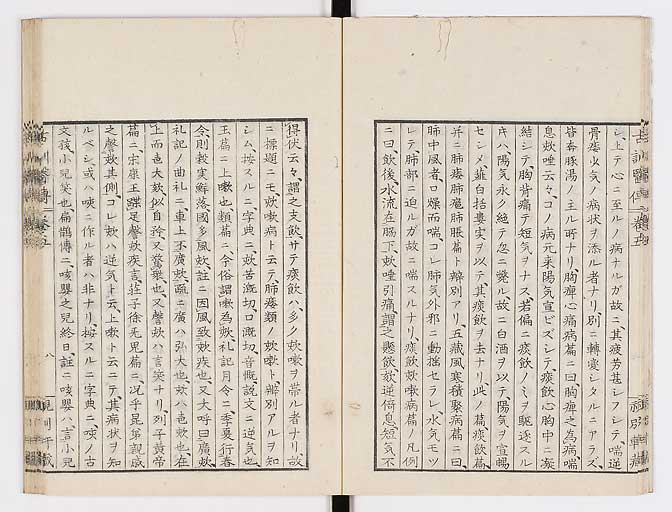 シ、上テ心ニ至ルノ病ナルガ故ニ其疲労甚シフシテ、喘逆
骨痿少気ノ病状ヲ添ル者ナリ、別ニ轉変シタルニアラズ
皆奔豚湯ノ主ル所ナリ、胸痺心痛病篇ニ曰、胸痺之為病喘
息欬唾云々、コノ病元来陽気宣ビズシテ、痰飲心胸中ニ凝
結シテ、胸背痛テ短気ヲナス、若偏ニ痰飲ノミヲ駆逐スル
トキハ、陽気永ク絶テ忽ニ斃ル、故ニ白酒ヲ以テ陽気ヲ宣暢
セシメ、薤白括蔞実ヲ以テ其痰飲ヲ去ナリ、此ノ篇痰飲篇
并ニ肺痿肺癰肺脹篇ト辨別アリ、五蔵風寒積聚病篇ニ曰、
肺中風者、口燥而喘、コレ肺気外邪ニ動揺セラレ、水気モツ
レテ肺部ニ迫ルガ故ニ喘スルナリ、痰飲欬嗽病篇ノ凡例
ニ曰、飲後、水流在脇下、欬唾引痛、謂之懸飲、欬逆倚息、短気不
得伏云々、謂之支飲、サテ痰飲ハ多ク欬嗽ヲ帯ル者ナリ、故
ニ標題ニモ、欬嗽病ト云テ、肺痿類ノ欬嗽ト、辨別アルヲ知
シム、按スルニ、字典ニ、欬苦漑切、口漑切、音慨、説文ニ逆気也、
玉篇ニ上嗽也、類篇ニ、今俗謂嗽為欬、礼記月令ニ季夏行春
令、則穀実鮮落、國多風欬、註ニ因風致欬疾也、又大呼曰廣欬、
礼記ノ曲礼ニ、車上不廣欬、疏ニ廣ハ弘大也、欬ハ声欬也、在
上而声大欬、似自矜、又驚衆也、又謦欬ハ言笑ナリ、列子黄帝
篇ニ、宋康王蹀足謦欬疾言、荘子徐无鬼篇ニ、况乎昆弟親戚
之謦欬其側、コレ欬ハ逆気ト云、上嗽ト云ニテ其病状ヲ知
ルベシ、或ハ咳ニ作ル者ハ非ナリ、按スルニ字典ニ、咳ノ古
文孩、小児笑也、扁鵲傳ニ咳嬰之児終日、註ニ咳嬰ハ、言小児
八